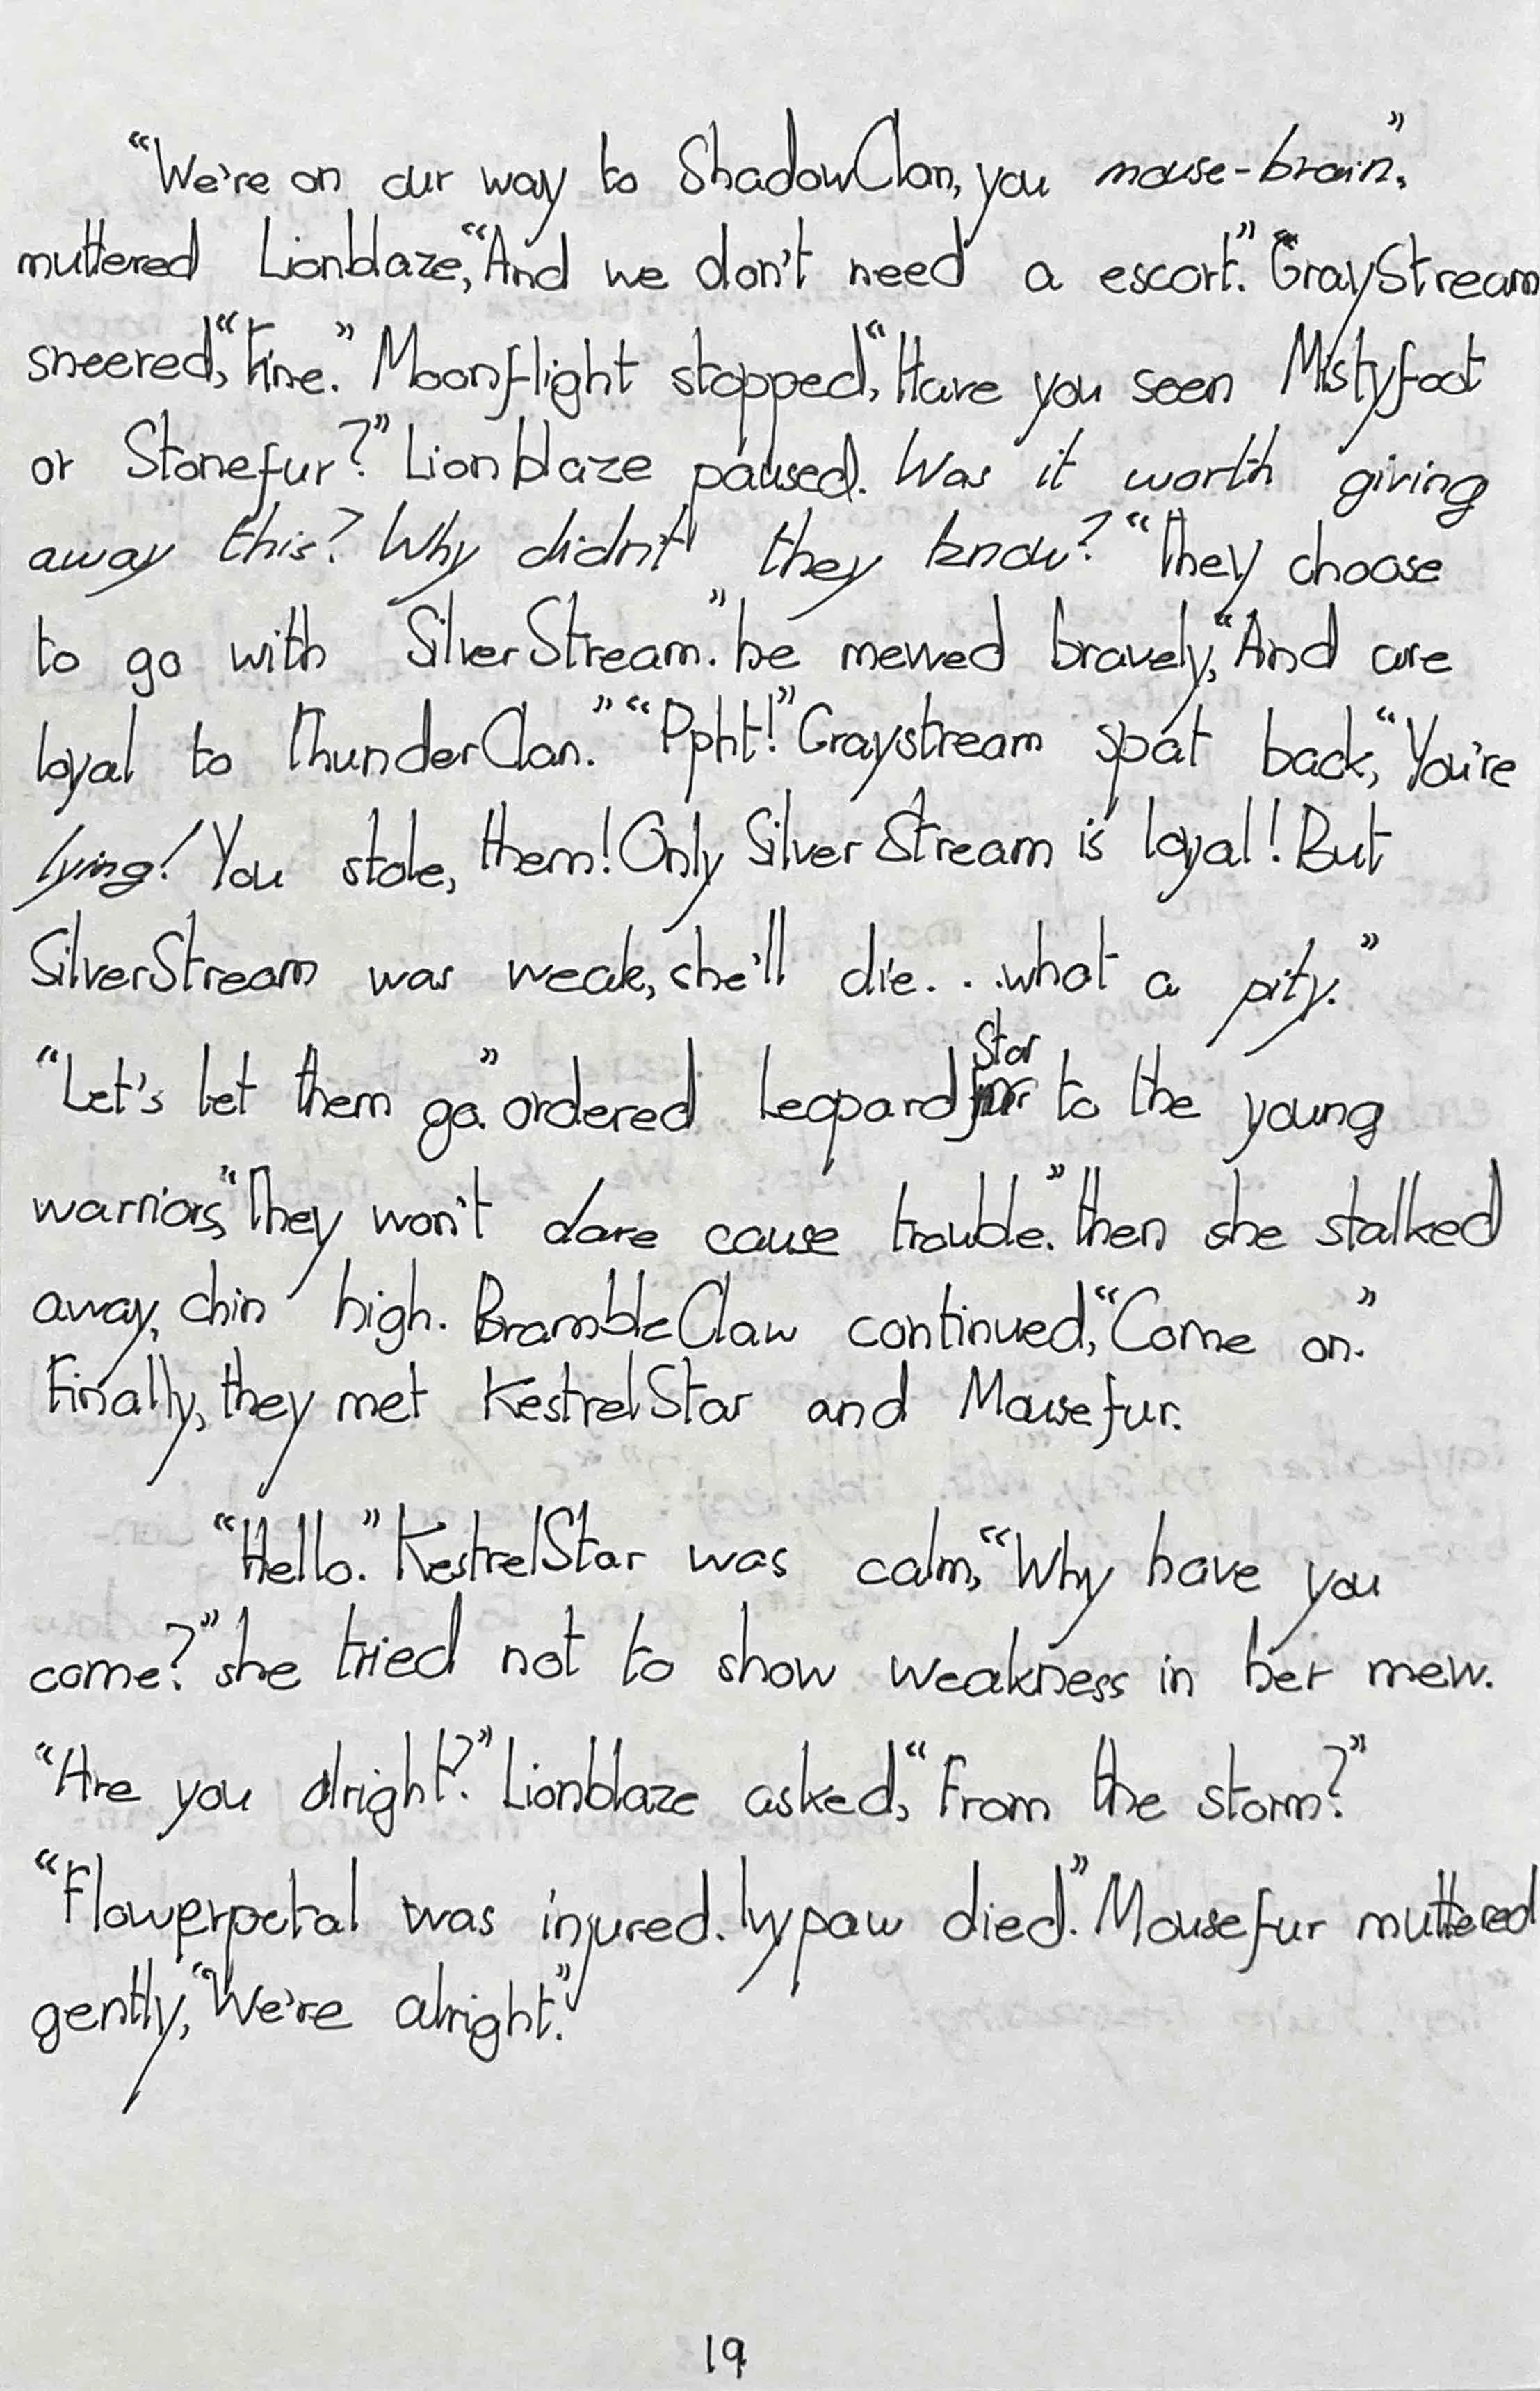 “We're on our way to ShadowClan, you mouse-brain,”
muttered Lionblaze, “And we don't need a escort.” GrayStream
sneered, “Fine.” Moonflight stopped, “Have you seen Mistyfoot
or Stonefur?” Lionblaze paused. Was it worth giving
away this? Why didnt' they know? “They choose
to go with SilverStream.” he mewed bravely, “And are
loyal to ThunderClan.” “Ppht!” Graystream spat back, “You're
lying! You stole, them! Only SilverStream is loyal! But
SilverStream was weak, she'll die. . .what a pity.”
“Let's let them go.” ordered LeopardStar to the young
warriors, “They won't dare cause trouble.” then she stalked
away, chin high. BrambleClaw continued, “Come on.”
Finally, they met KestrelStar and Mousefur.
“Hello.” KestrelStar was calm, “Why have you
come?” she tried not to show weakness in her mew.
“Are you alright?” Lionblaze asked, “From the storm?”
“Flowerpetal was injured. Ivypaw died.” Mousefur muttered
gently, “We're alright.”
19